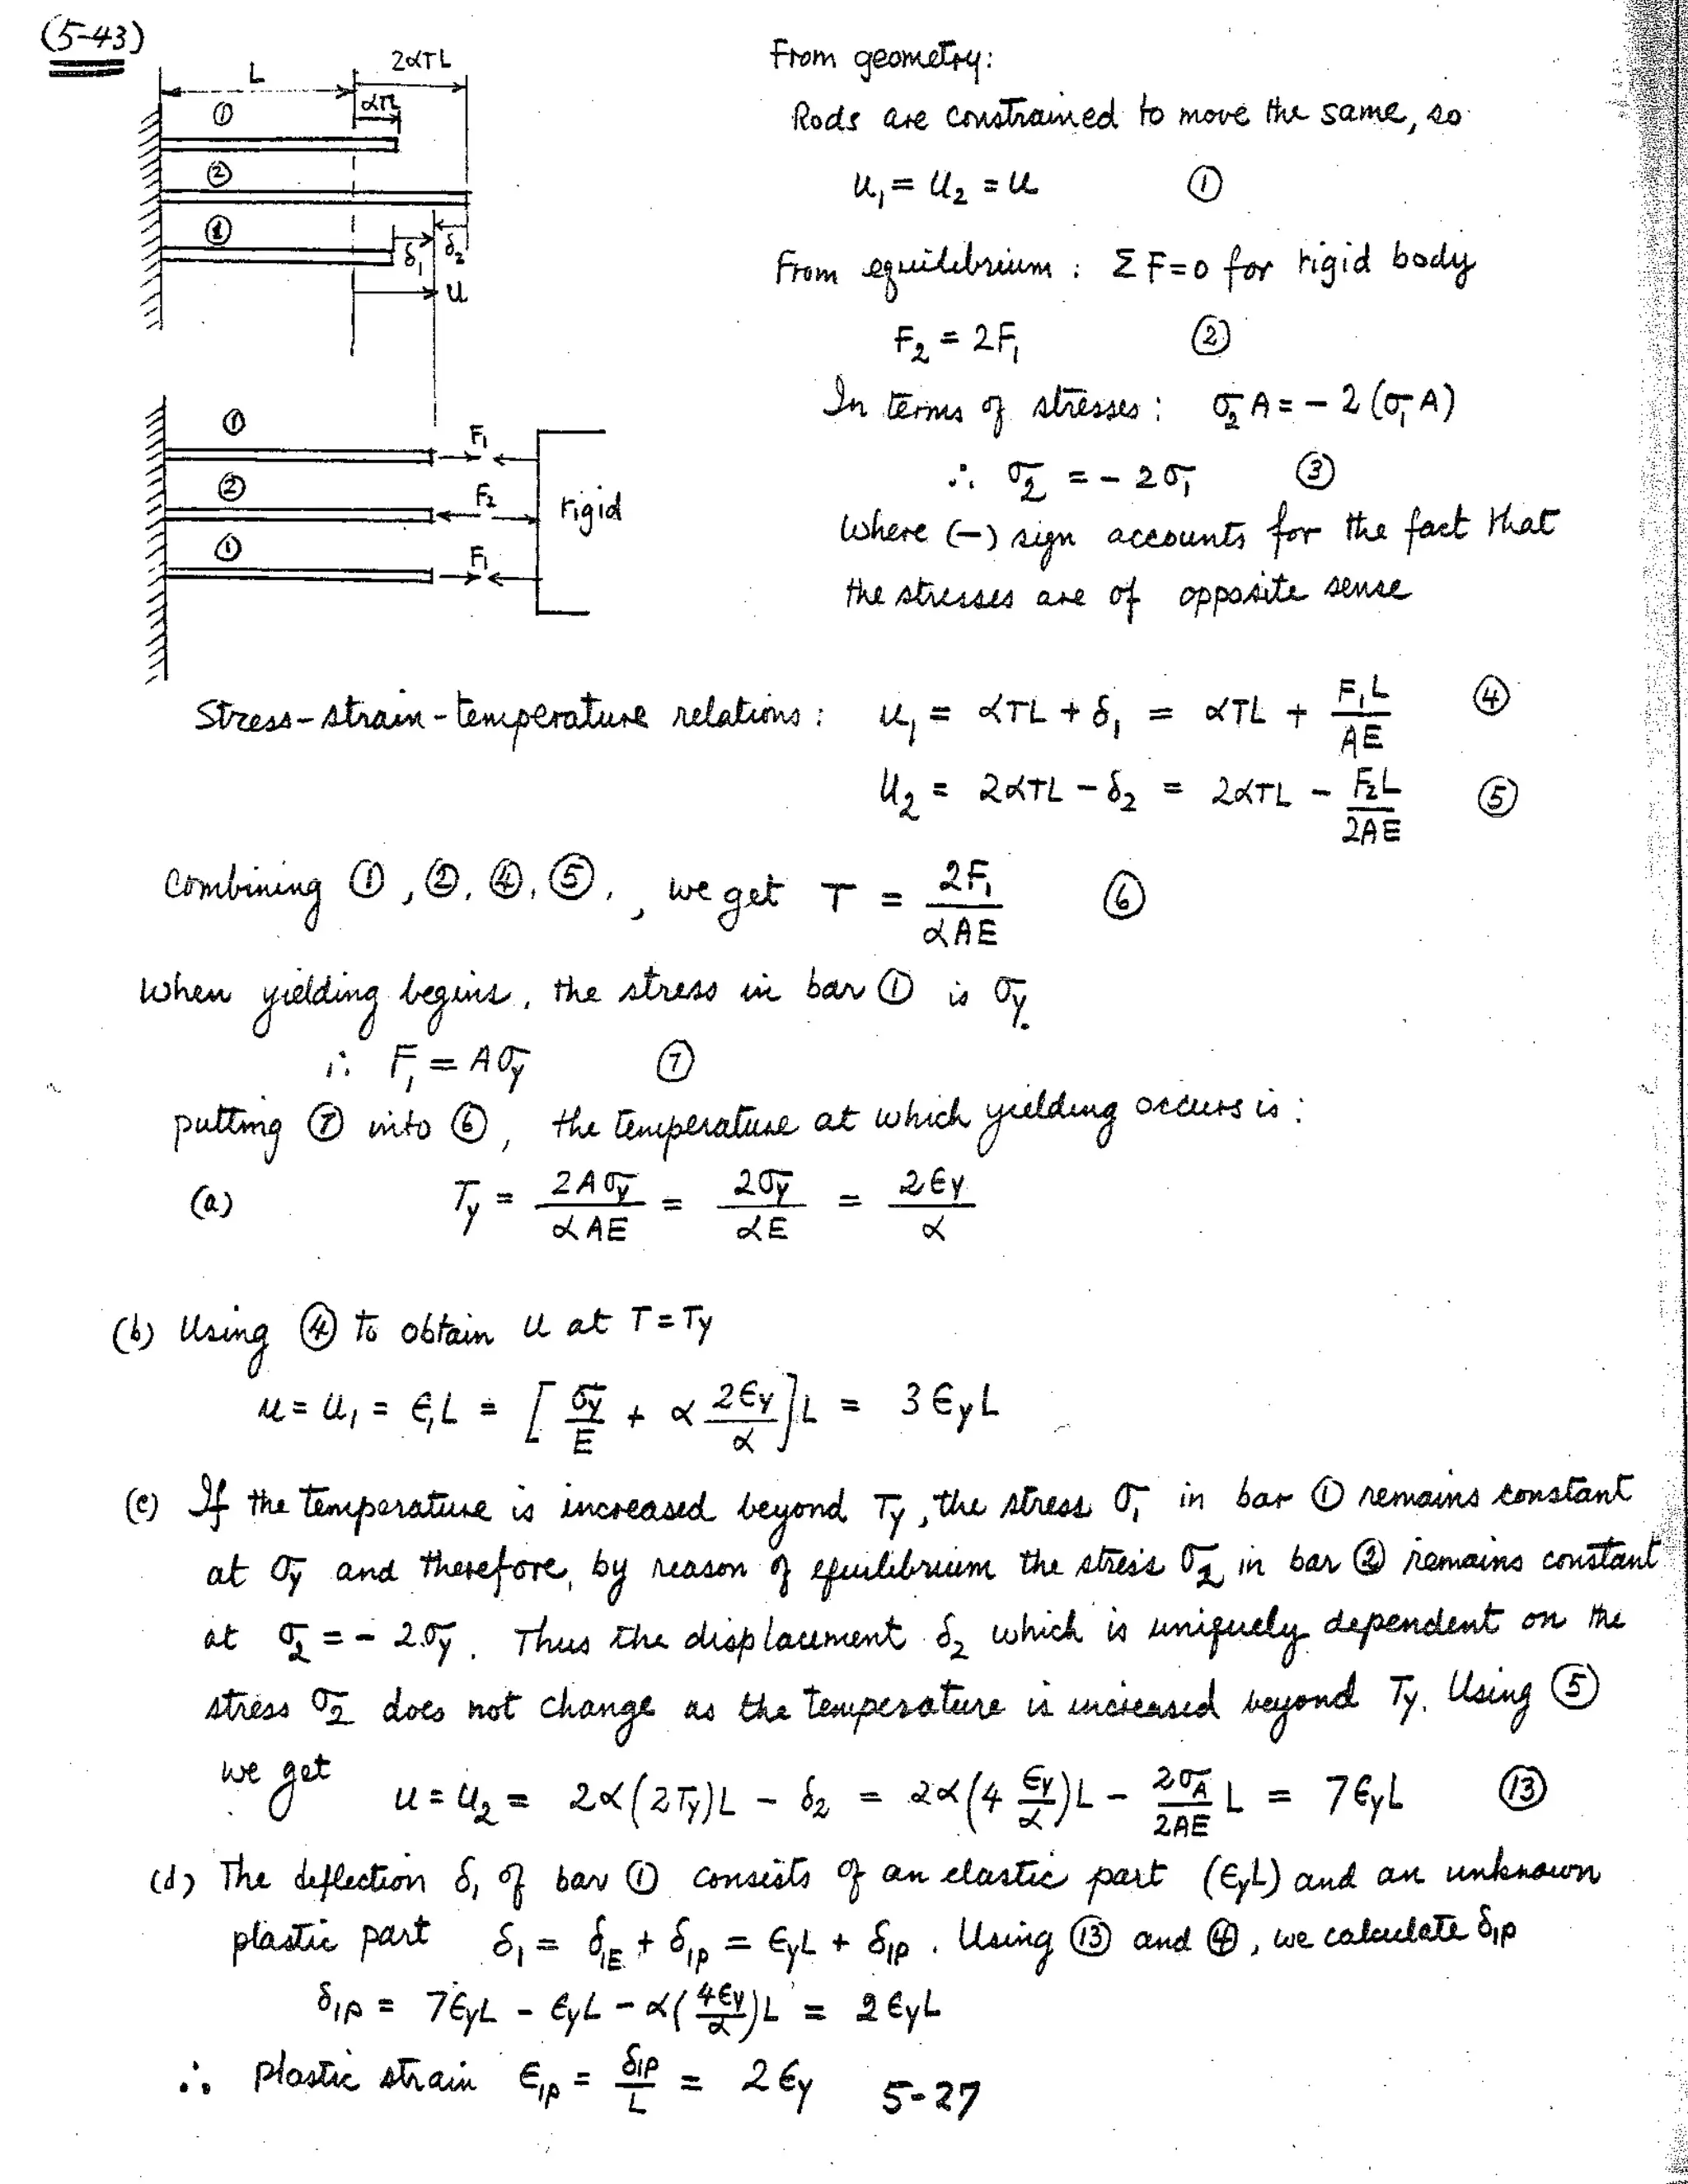 (5-43)
L
2αTL
αTL
①
②
①
δ₁
δ₂
u
①
②
①
F₁
F₂
F₁
rigid
From geometry:
Rods are constrained to move the same, so
u₁ = u₂ = u ①
From equilibrium : ΣF=0 for rigid body
F₂ = 2F₁ ②
In terms of stresses : σ₂A = - 2(σ₁A)
∴ σ₂ = - 2σ₁ ③
Where (-) sign accounts for the fact that
the stresses are of opposite sense
Stress-strain-temperature relations : u₁ = αTL + δ₁ = αTL + F₁L/AE ④
u₂ = 2αTL - δ₂ = 2αTL - F₂L/2AE ⑤
Combining ①, ②, ④, ⑤, we get T = 2F₁/αAE ⑥
When yielding begins, the stress in bar ① is σy.
∴ F₁ = Aσy ⑦
putting ⑦ into ⑥, the temperature at which yielding occurs is :
(a) Ty = 2Aσy/αAE = 2σy/αE = 2ϵy/α
(b) Using ④ to obtain u at T=Ty
u = u₁ = ϵ₁L = [σy/E + α 2ϵy/α]L = 3ϵyL
(c) If the temperature is increased beyond Ty, the stress σ₁ in bar ① remains constant
at σy and therefore, by reason of equilibrium the stress σ₂ in bar ② remains constant
at σ₂ = - 2σy. Thus the displacement δ₂ which is uniquely dependent on the
stress σ₂ does not change as the temperature is increased beyond Ty. Using ⑤
we get u = u₂ = 2α(2Ty)L - δ₂ = 2α(4 ϵy/α)L - 2σA/2AE L = 7ϵyL ⑬
(d) The deflection δ₁ of bar ① consists of an elastic part (ϵyL) and an unknown
plastic part δ₁ = δ₁E + δ₁p = ϵyL + δ₁p. Using ⑬ and ④, we calculate δ₁p
δ₁p = 7ϵyL - ϵyL - α(4ϵy/α)L = 2ϵyL
∴ Plastic strain ϵ₁p = δ₁p/L = 2ϵy
5-27